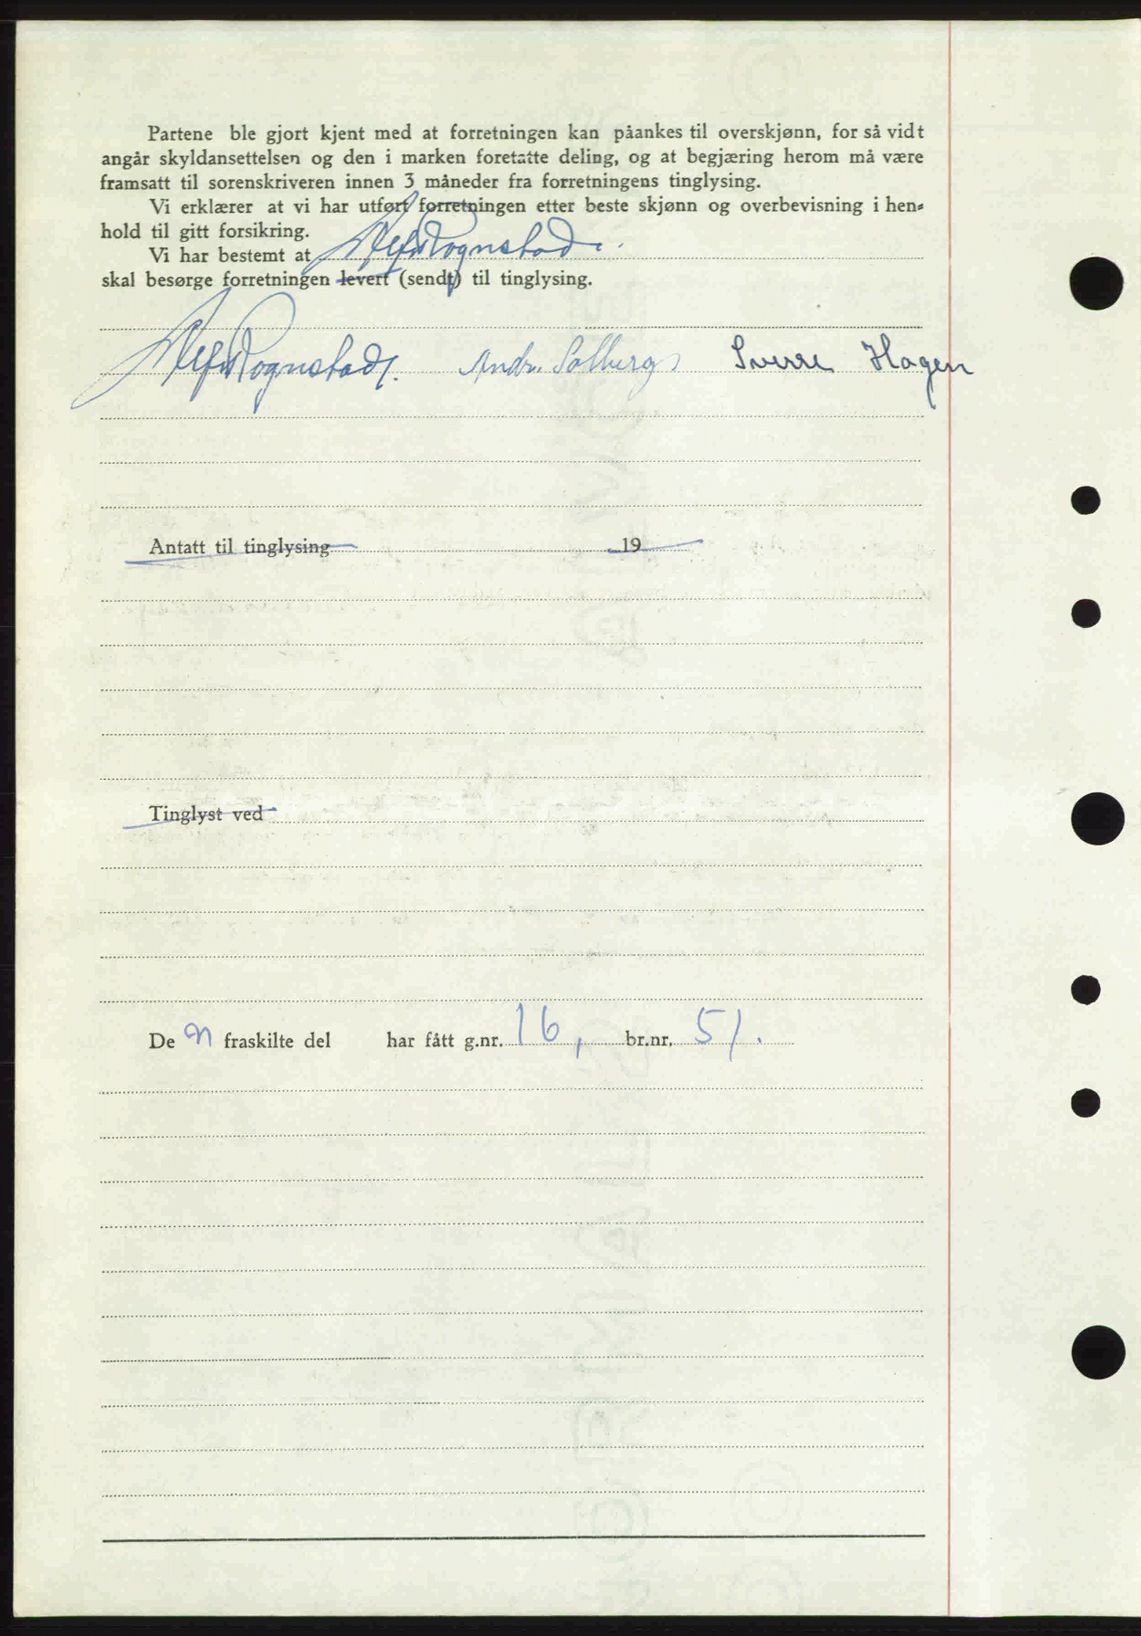 Partene ble gjort kjent med at forretningen kan påankes til overskjønn, for så vidt
angår skyldansettelsen og den i marken foretatte deling, og at begjæring herom må være
framsatt til sorenskriveren innen 3 måneder fra forretningens tinglysing.
Vi erklærer at vi har utført forretningen etter beste skjønn og overbevisning i hen-
hold til gitt forsikring.
Vi har bestemt at Rognstad
skal besørge forretningen levert (sendt) til tinglysing.
Rognstad. Andr. Solberg Sverre Hagen
Antatt til tinglysing 19
Tinglyst ved
De n fraskilte del har fått g.nr. 16, br.nr. 51.